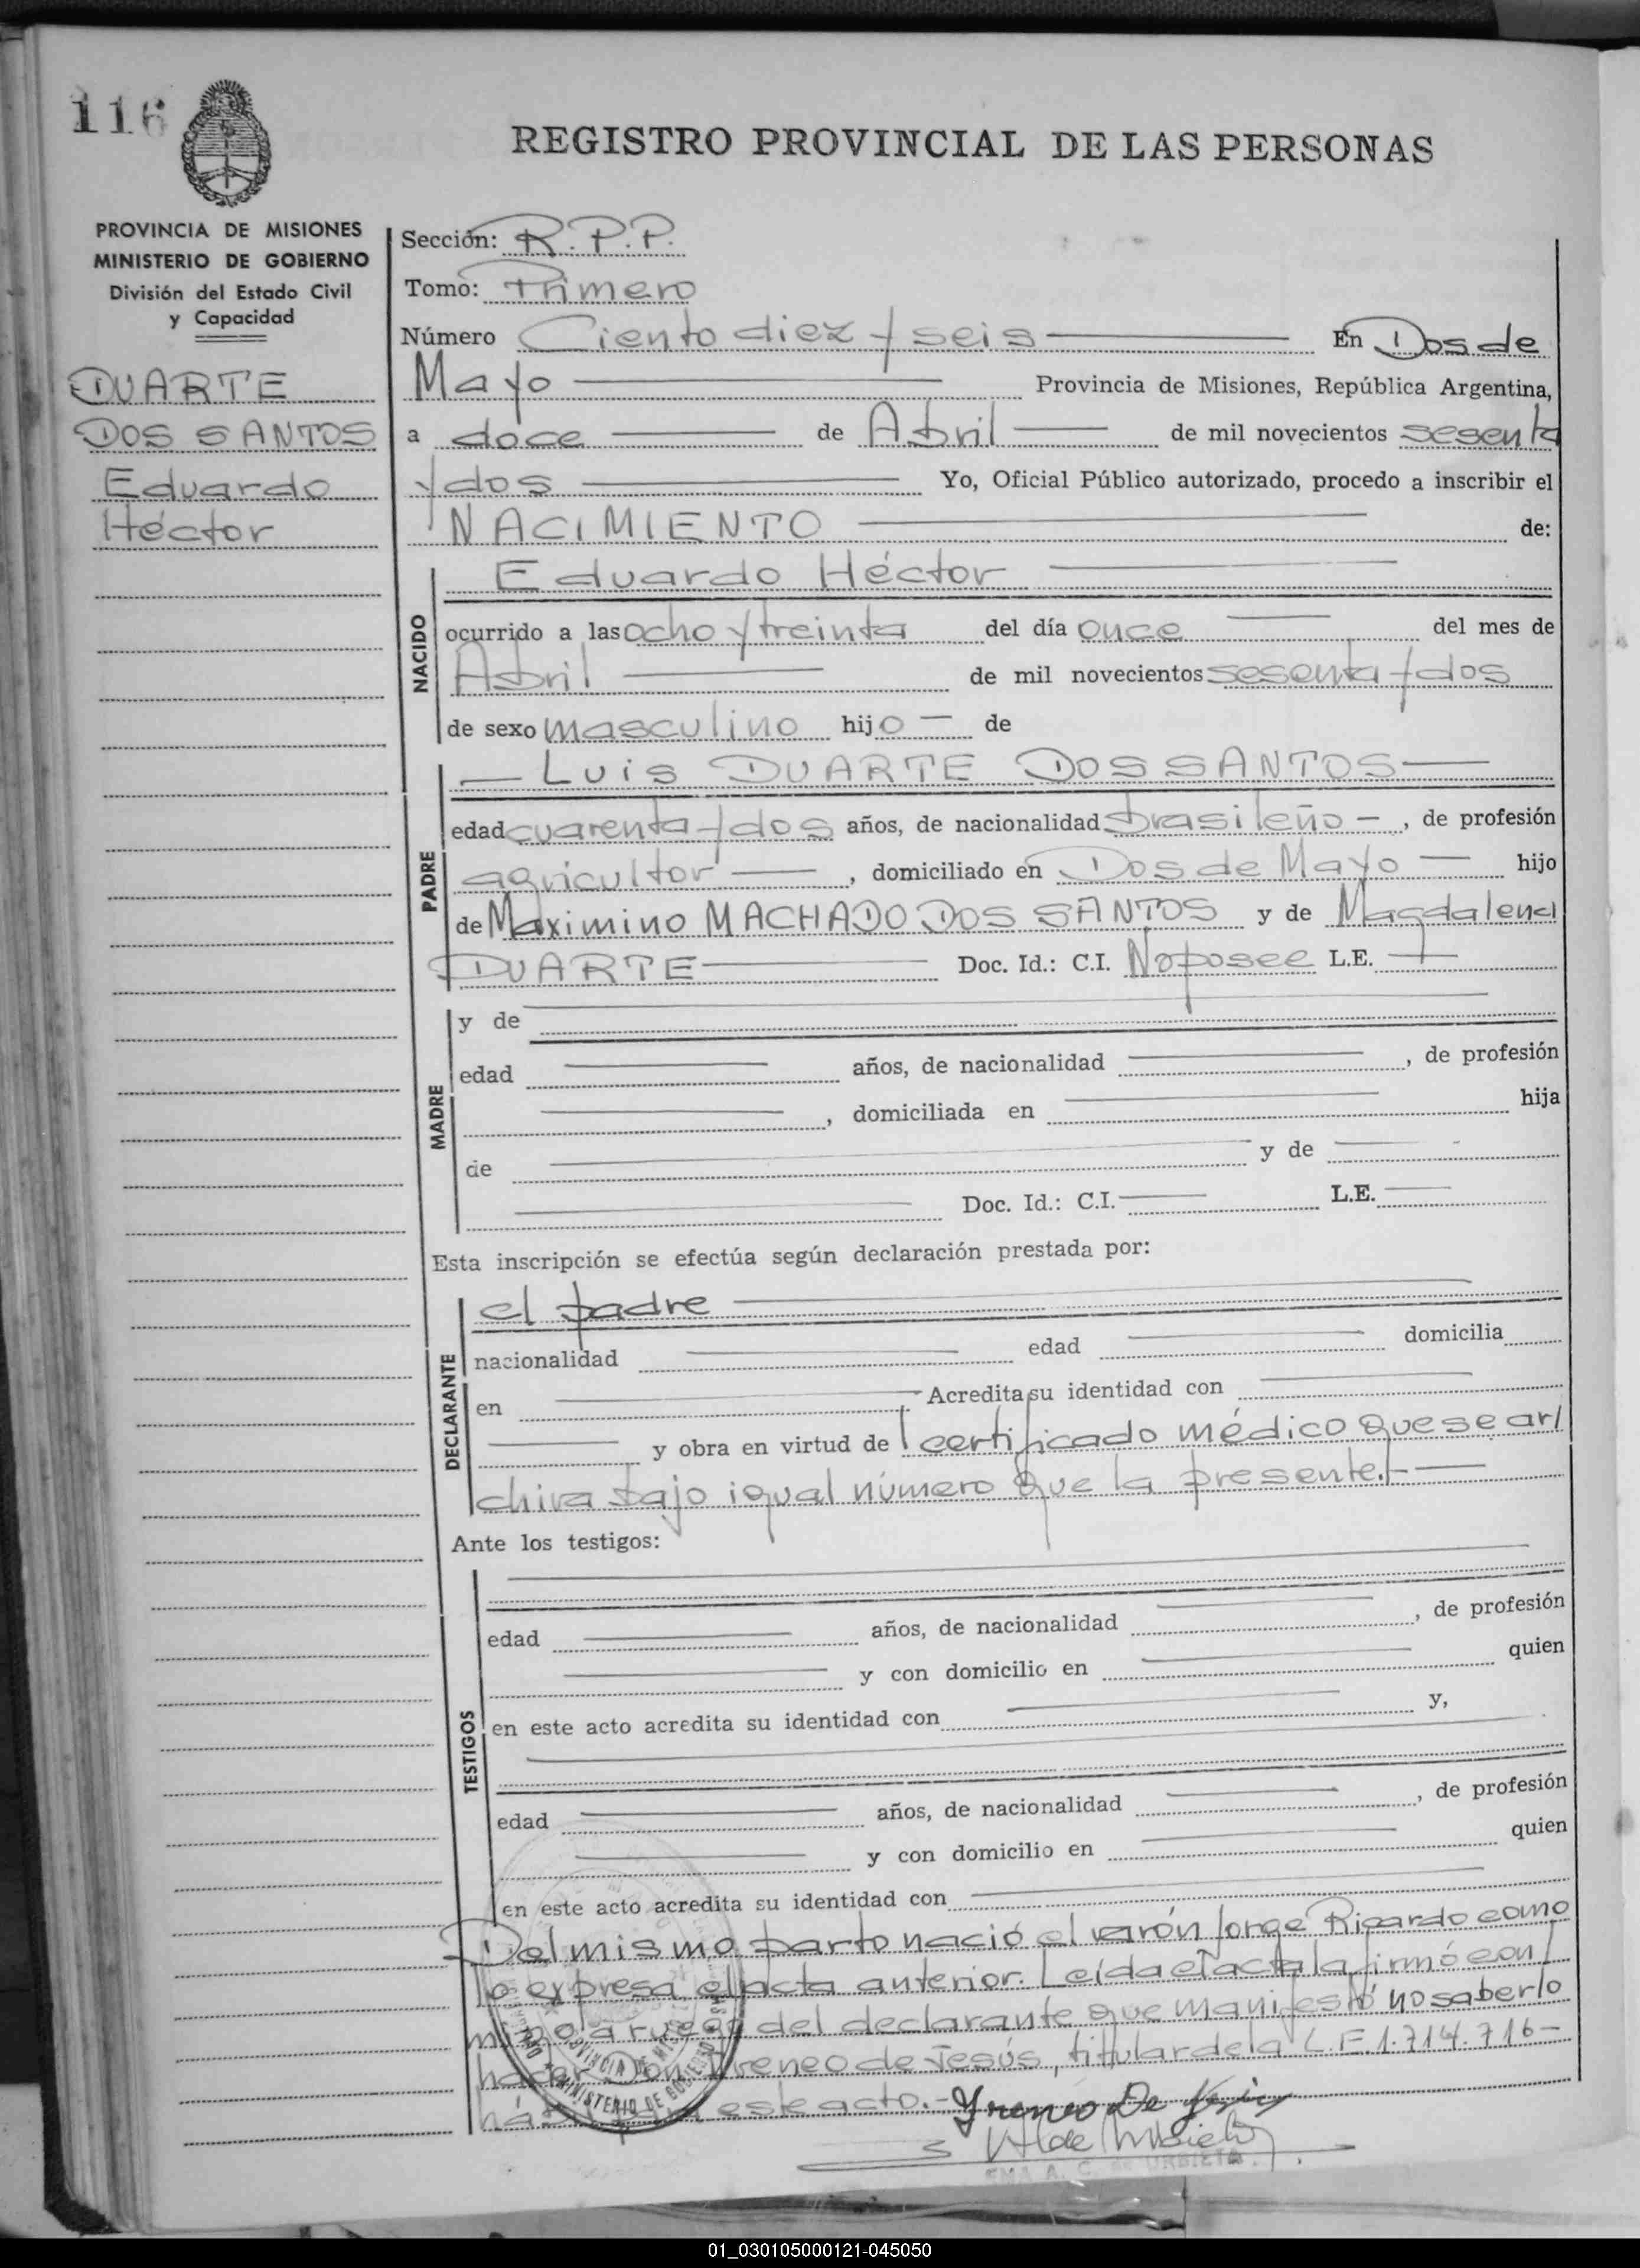 116
REGISTRO PROVINCIAL DE LAS PERSONAS
PROVINCIA DE MISIONES
MINISTERIO DE GOBIERNO
División del Estado Civil
y Capacidad
DUARTE
DOS SANTOS
Eduardo
Héctor
Sección: R.P.P.
Tomo: Primero
Número Ciento diez y seis En Dos de
Mayo Provincia de Misiones, República Argentina,
a doce de Abril de mil novecientos sesenta
y dos Yo, Oficial Público autorizado, procedo a inscribir el
NACIMIENTO de:
NACIDO
Eduardo Héctor
ocurrido a las ocho y treinta del día once del mes de
Abril de mil novecientos sesenta y dos
de sexo masculino hijo de
PADRE
Luis DUARTE DOS SANTOS
edad cuarenta y dos años, de nacionalidad brasileño, de profesión
agricultor, domiciliado en Dos de Mayo hijo
de Maximino MACHADO DOS SANTOS y de Magdalena
DUARTE Doc. Id.: C.I. No posee L.E.
MADRE
y de
edad años, de nacionalidad , de profesión
, domiciliada en hija
de y de
Doc. Id.: C.I. L.E.
Esta inscripción se efectúa según declaración prestada por:
DECLARANTE
el padre
nacionalidad edad domicilia
en Acredita su identidad con
y obra en virtud de l certificado médico que se ar/
chiva bajo igual número que la presente.-
Ante los testigos:
TESTIGOS
edad años, de nacionalidad , de profesión
y con domicilio en quien
en este acto acredita su identidad con y,
edad años, de nacionalidad , de profesión
y con domicilio en quien
en este acto acredita su identidad con
Del mismo parto nació el varón Jorge Ricardo como
lo expresa el acta anterior. Leída el acta la firmó con/
migo a ruego del declarante que manifestó no saberlo
hacer Don Ireneo de Jesús, titular de la L.E. 1.714.716-
en este acto.- Yreneo De Jesús
PROVINCIA DE
MINISTERIO DE GOBIERNO
A. C. de URBIETA
01_030105000121-045050